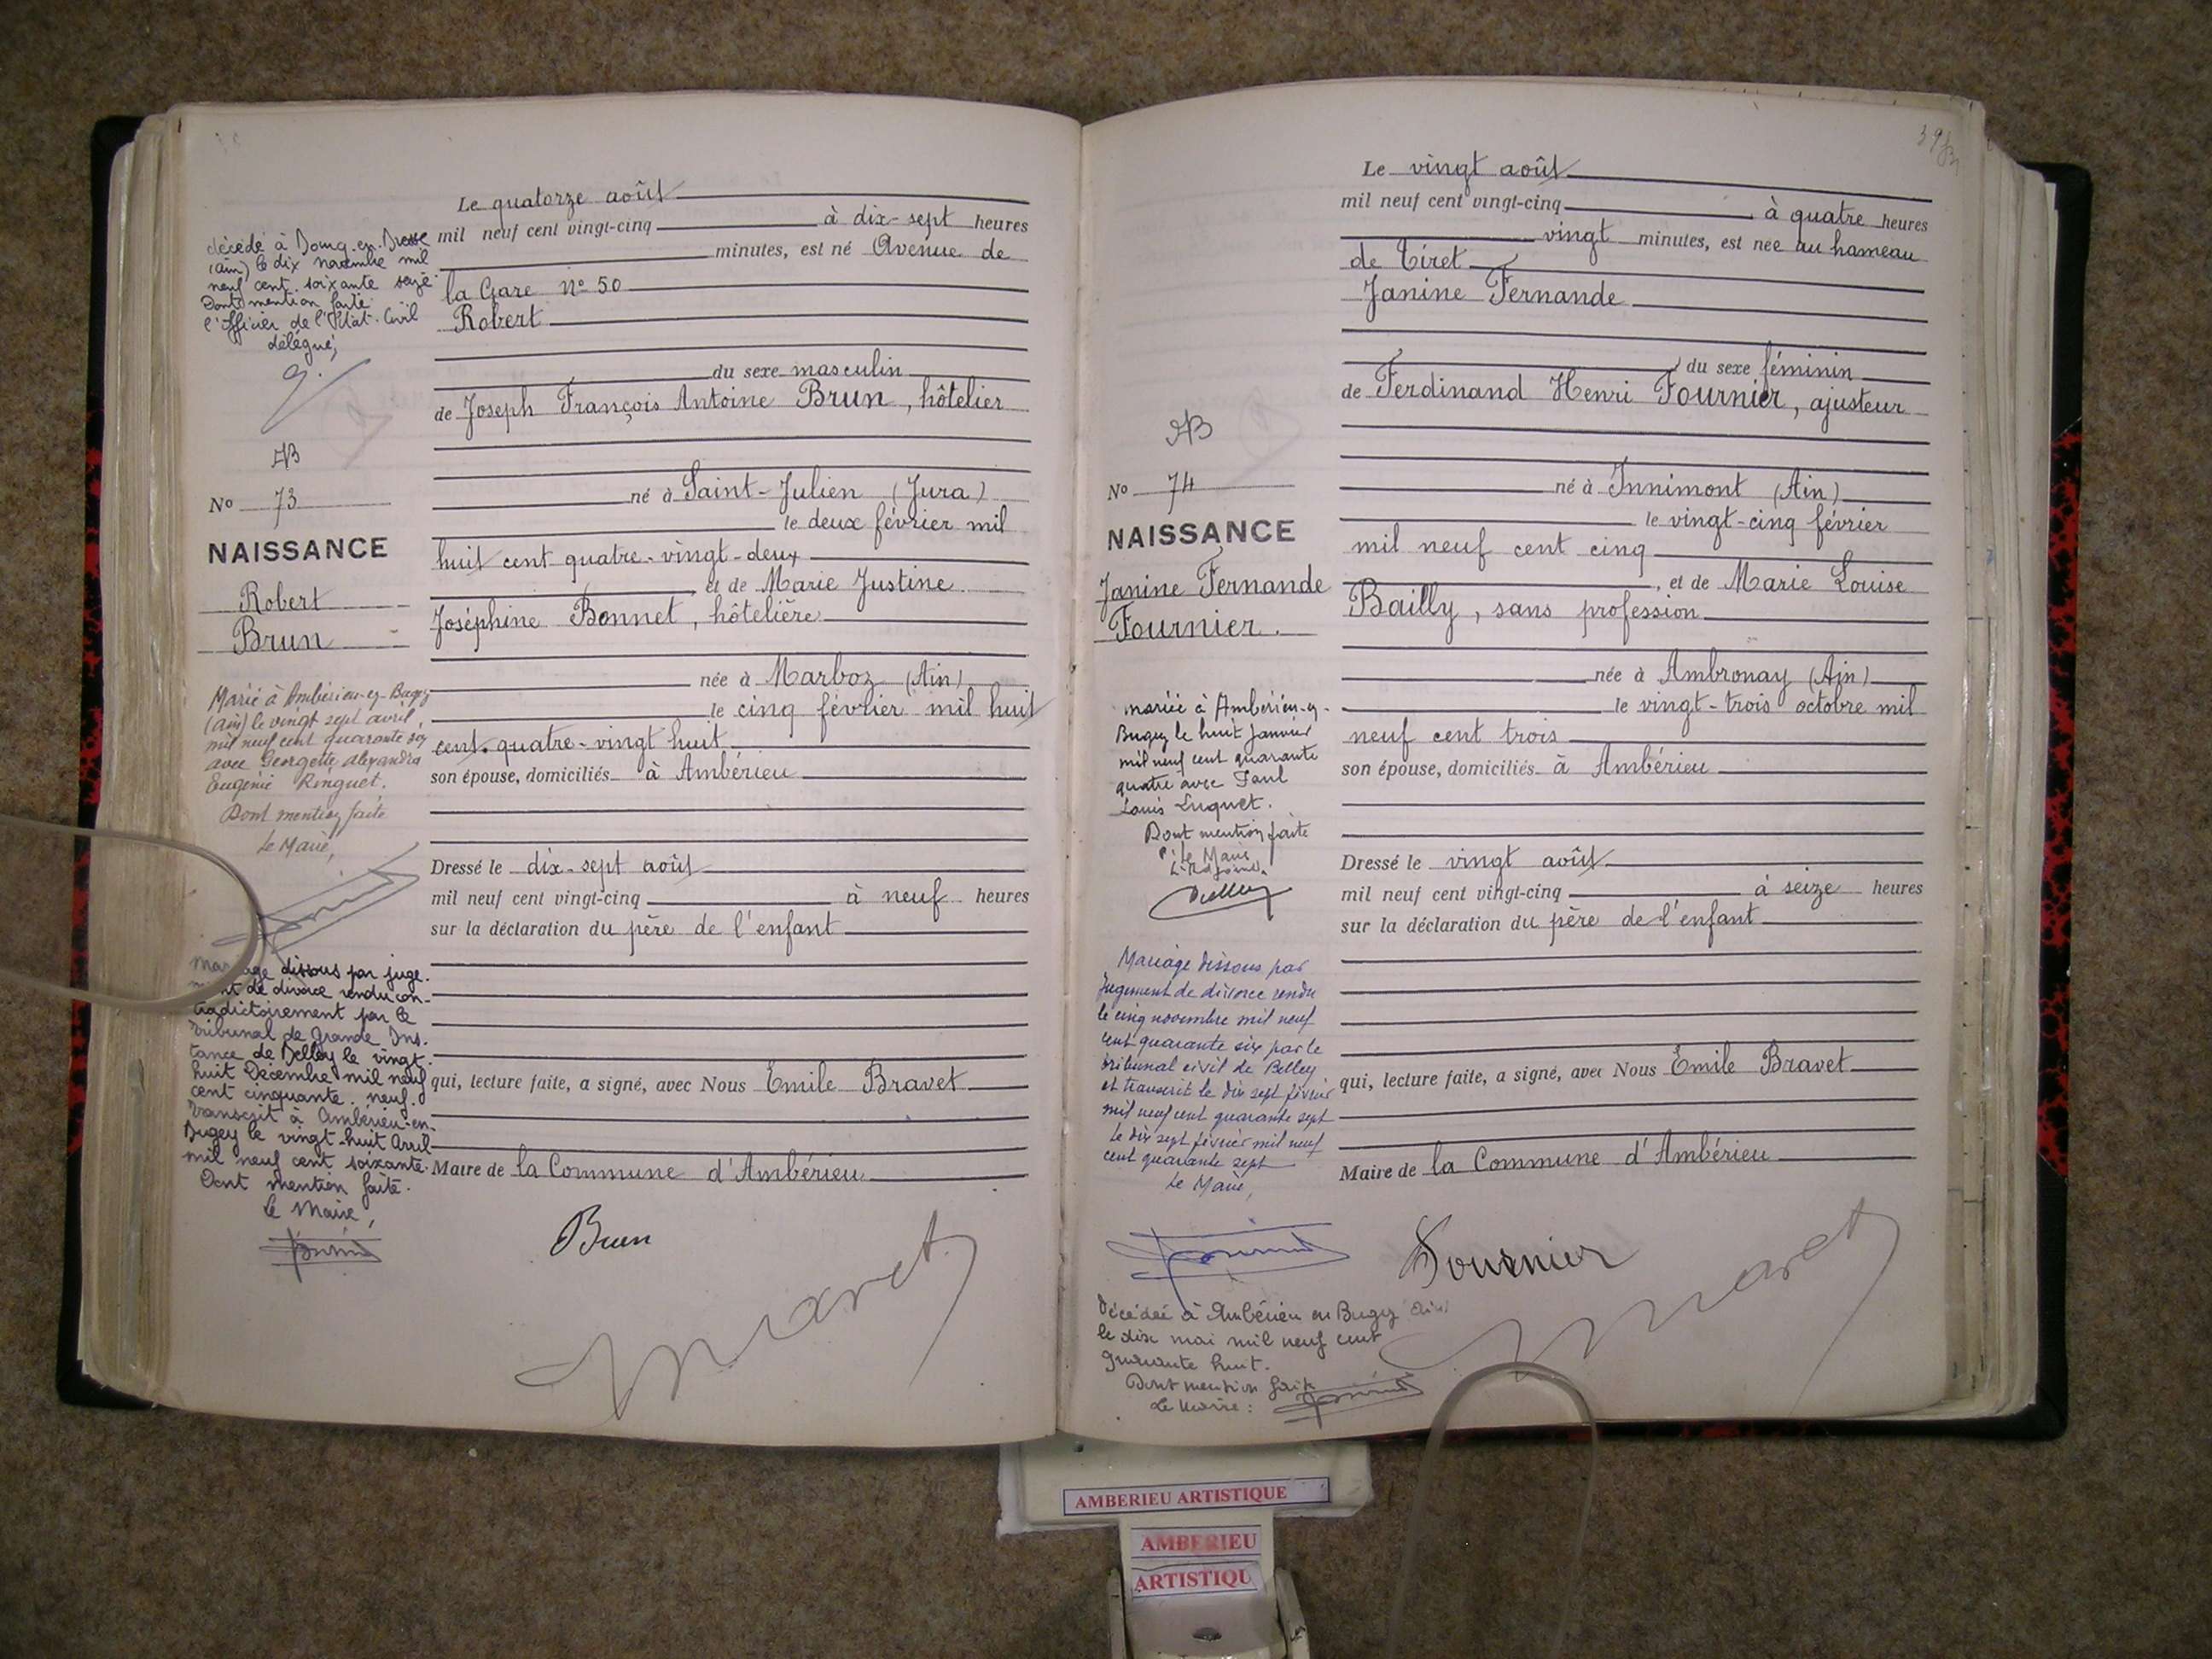 Le quatorze août
mil neuf cent vingt-cinq à dix-sept heures
minutes, est né Avenue de
la Gare Nº 50
Robert
du sexe masculin
de Joseph François Antoine Brun, hôtelier
né à Saint-Julien (Jura)
le deux février mil
huit cent quatre-vingt-deux
et de Marie Justine
Joséphine Bonnet, hôtelière
née à Marboz (Ain)
le cinq février mil huit
cent quatre-vingt huit
son épouse, domiciliés à Ambérieu
Dressé le dix-sept août
mil neuf cent vingt-cinq à neuf heures
sur la déclaration du père de l'enfant
qui, lecture faite, a signé, avec Nous Emile Bravet
Maire de la Commune d'Ambérieu
Brun
décédé à Bourg-en-Bresse
(Ain) le dix novembre mil
neuf cent soixante seize
Dont mention faite
l'Officier de l'Etat-Civil
délégué,
No 73
NAISSANCE
Robert
Brun
Marié à Ambérieu-en-Bugey
(Ain) le vingt sept avril,
mil neuf cent quarante six
avec Georgette Alexandra
Eugénie Ringuet.
Dont mention faite
Le Maire,
Mariage dissous par juge-
ment de divorce rendu con-
tradictoirement par le
Tribunal de Grande Ins-
tance de Belley le vingt-
huit Décembre mil neuf
cent cinquante-neuf.
Transcrit à Ambérieu-en-
Bugey le vingt-huit Avril
mil neuf cent soixante.
Dont mention faite.
Le Maire,
Le vingt août
mil neuf cent vingt-cinq à quatre heures
vingt minutes, est née au hameau
de Tiret
Janine Fernande
du sexe féminin
de Ferdinand Henri Fournier, ajusteur
né à Innimont (Ain)
le vingt-cinq février
mil neuf cent cinq
, et de Marie Louise
Bailly, sans profession
née à Ambronay (Ain)
le vingt-trois octobre mil
neuf cent trois
son épouse, domiciliés à Ambérieu
Dressé le vingt août
mil neuf cent vingt-cinq à seize heures
sur la déclaration du père de l'enfant
qui, lecture faite, a signé, avec Nous Emile Bravet
Maire de la Commune d'Ambérieu
Fournier
No 74
NAISSANCE
Janine Fernande
Fournier.
mariée à Ambérieu-en-
Bugey le huit Janvier
mil neuf cent quarante
quatre avec Paul
Louis Luquet.
Dont mention faite
P. le Maire
L'Adjoint.
Mariage dissous par
Jugement de divorce rendu
le cinq novembre mil neuf
cent quarante six par le
tribunal civil de Belley
et transcrit le dix sept février
mil neuf cent quarante sept
Le dix sept février mil neuf
cent quarante sept
Le Maire,
Décédée à Ambérieu en Bugey (Ain)
le dix mai mil neuf cent
quarante huit.
Dont mention faite
Le Maire:
AMBERIEU ARTISTIQUE
AMBERIEU
ARTISTIQU